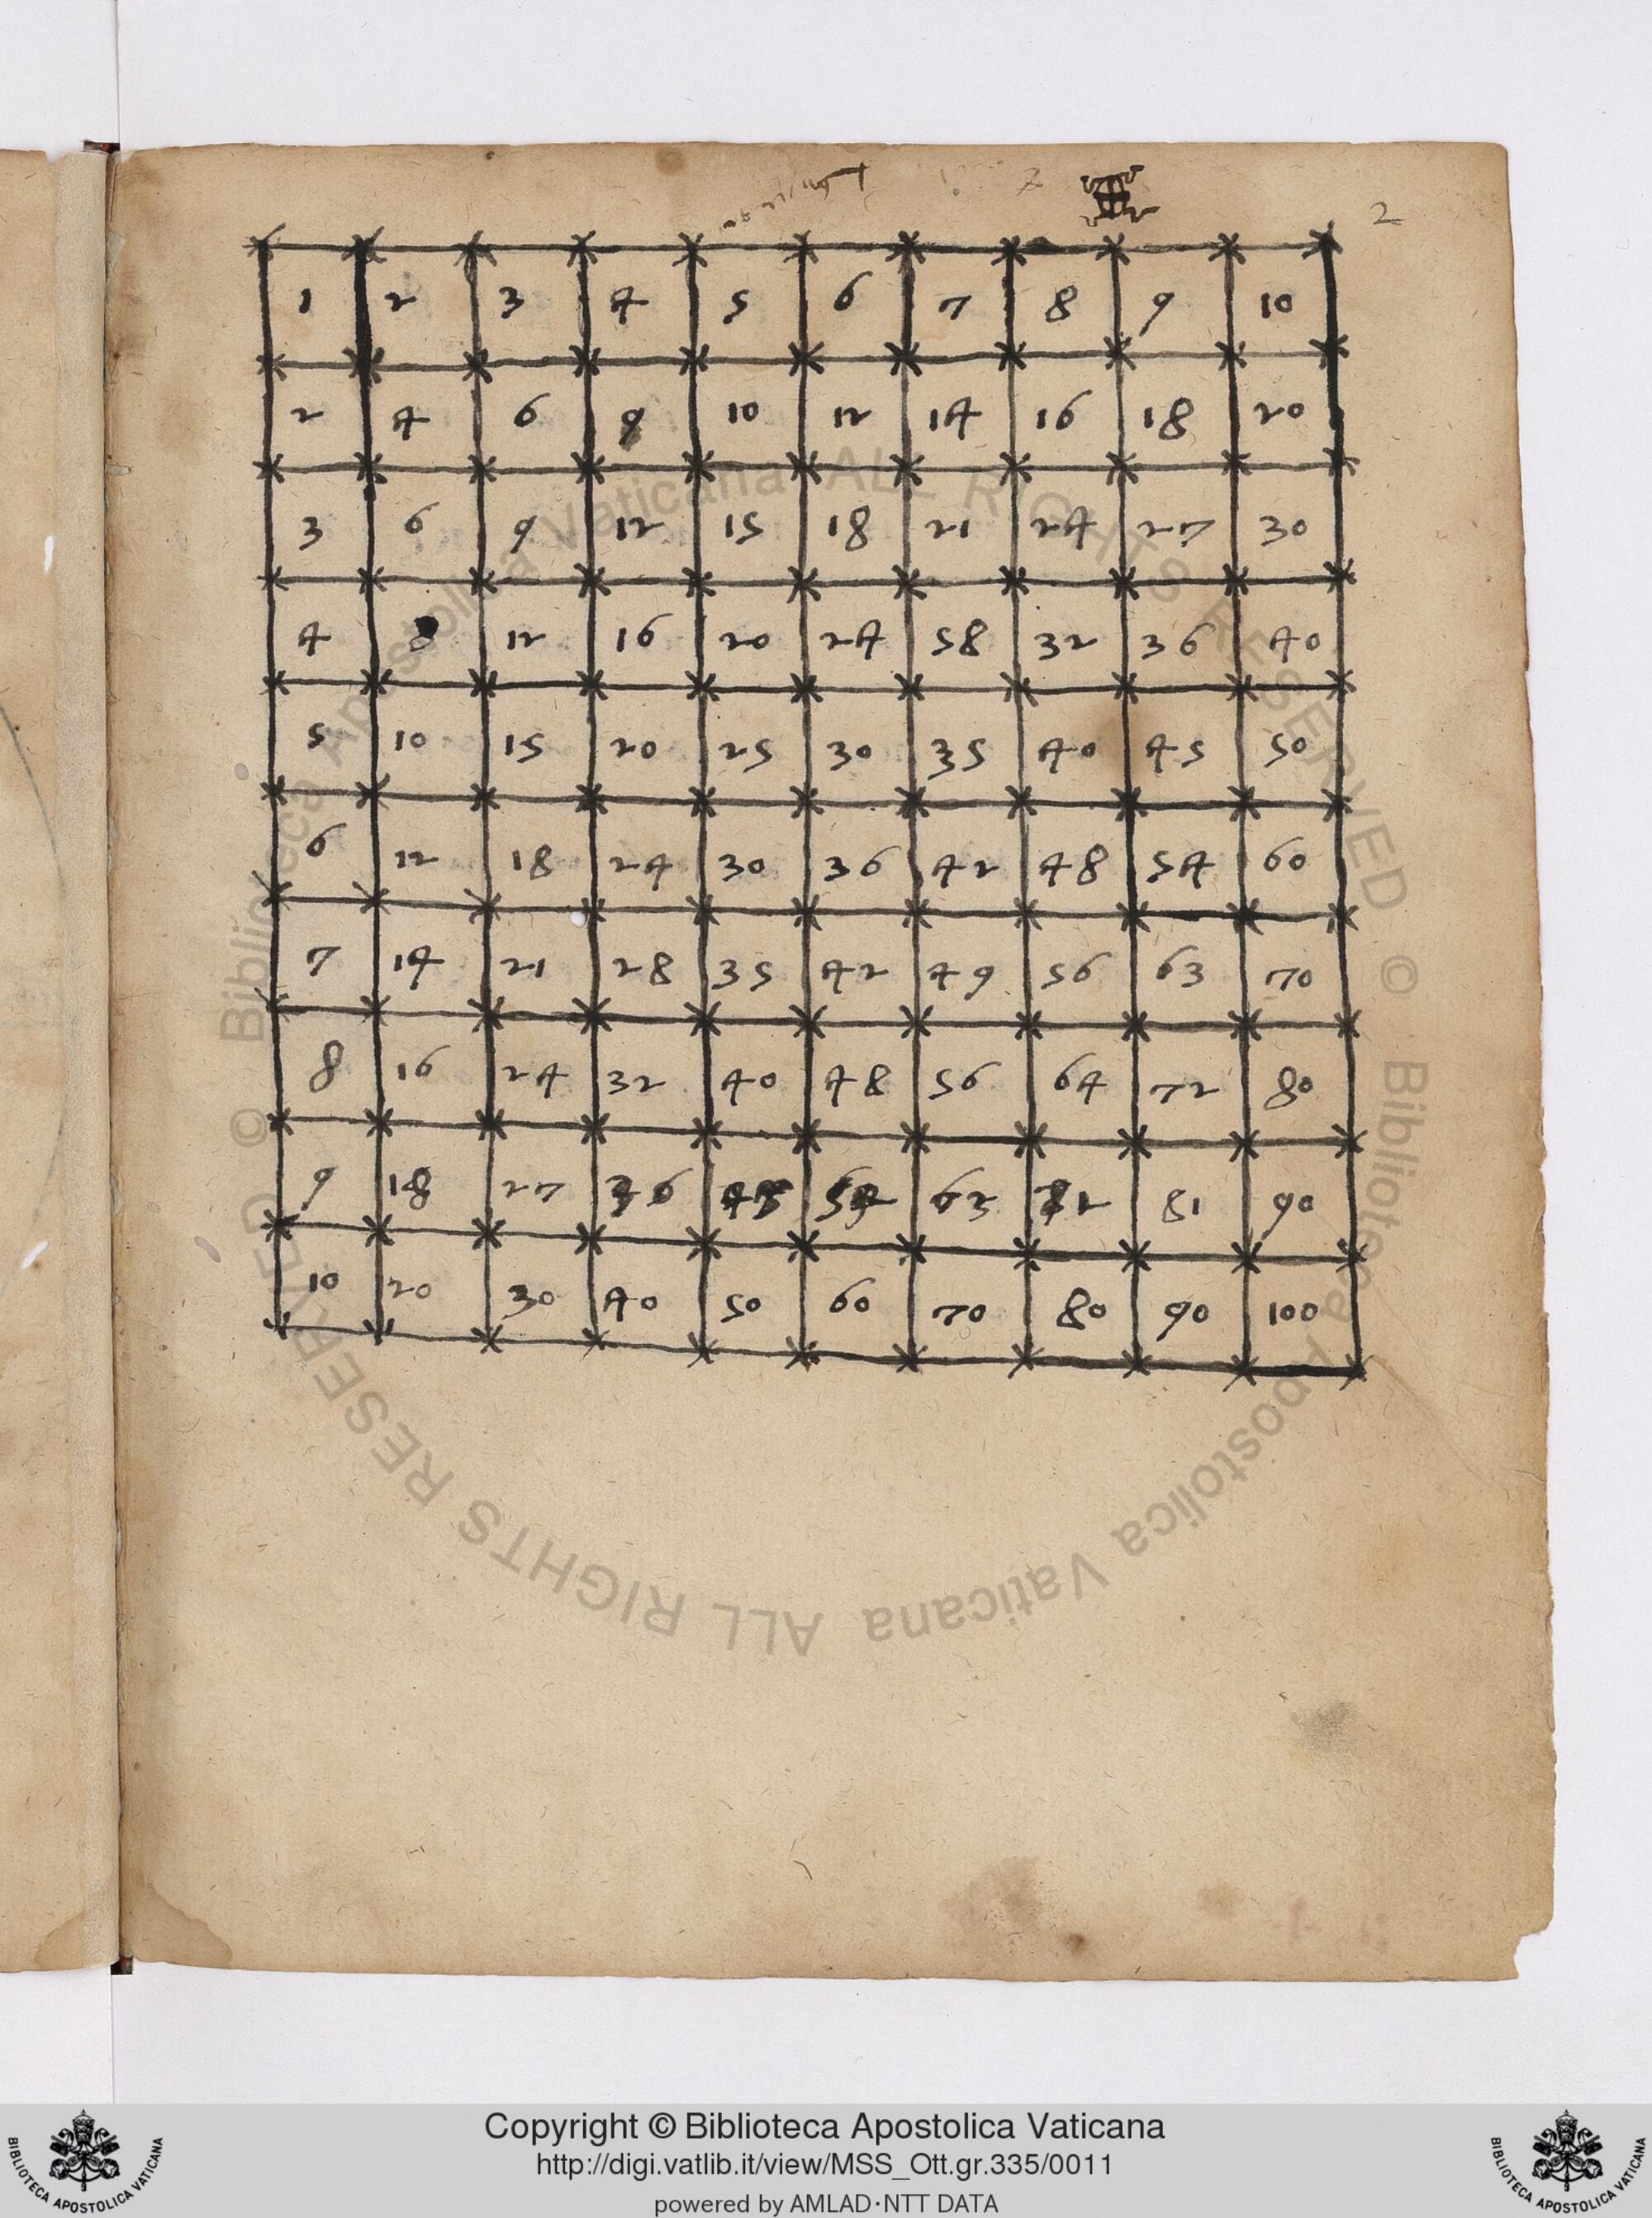 2
1 2 3 4 5 6 7 8 9 10
2 4 6 9 10 12 14 16 18 20
3 6 9 12 15 18 21 24 27 30
4 8 12 16 20 24 58 32 36 40
5 10 15 20 25 30 35 40 45 50
6 12 18 24 30 36 42 48 54 60
7 14 21 28 35 42 49 56 63 70
8 16 24 32 40 48 56 64 72 80
9 18 27 36 45 54 63 72 81 90
10 20 30 40 50 60 70 80 90 100
© Biblioteca Apostolica Vaticana ALL RIGHTS RESERVED © Biblioteca Apostolica Vaticana ALL RIGHTS RESERVED
Copyright © Biblioteca Apostolica Vaticana
http://digi.vatlib.it/view/MSS_Ott.gr.335/0011
powered by AMLAD·NTT DATA
BIBLIOTECA APOSTOLICA VATICANA
BIBLIOTECA APOSTOLICA VATICANA